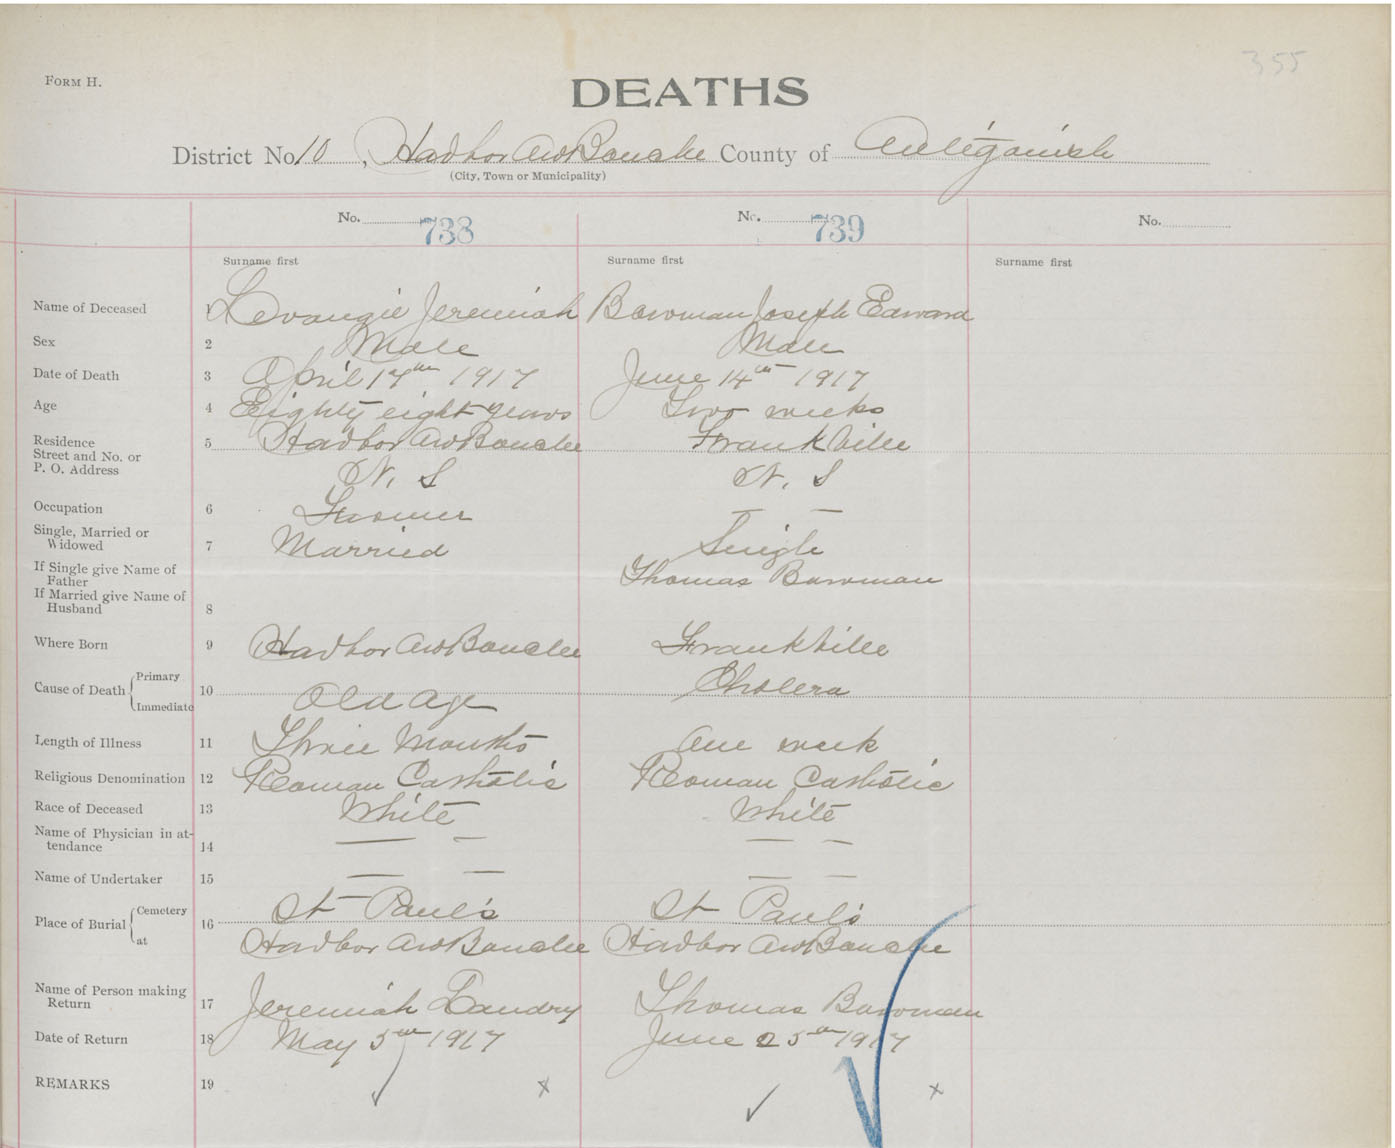 355
FORM H.
DEATHS
District No. 10, Harbor Au Bouche County of Antigonish
(City, Town or Municipality)
No. 738 No. 739 No.
Surname first Surname first Surname first
Name of Deceased 1 Levangie Jeremiah Bowman Joseph Edward
Sex 2 Male Male
Date of Death 3 April 17th 1917 June 14th 1917
Age 4 Eighty eight years Two weeks
Residence Street and No. or P. O. Address 5 Harbor Au Bouche Frankville
N. S N. S
Occupation 6 Farmer — —
Single, Married or Widowed 7 Married Single
If Single give Name of Father Thomas Bowman
If Married give Name of Husband 8
Where Born 9 Harbor Au Bouche Frankville
Cause of Death { Primary 10 Cholera
Immediate Old Age
Length of Illness 11 Three Months One week
Religious Denomination 12 Roman Catholic Roman Catholic
Race of Deceased 13 White White
Name of Physician in attendance 14 — — — —
Name of Undertaker 15 — — — —
Place of Burial { Cemetery 16 St Paul's St Paul's
at Harbor Au Bouche Harbor Au Bouche
Name of Person making Return 17 Jeremiah Landry Thomas Bowman
Date of Return 18 May 5th 1917 June 25th 1917
REMARKS 19 ✓ x ✓ x